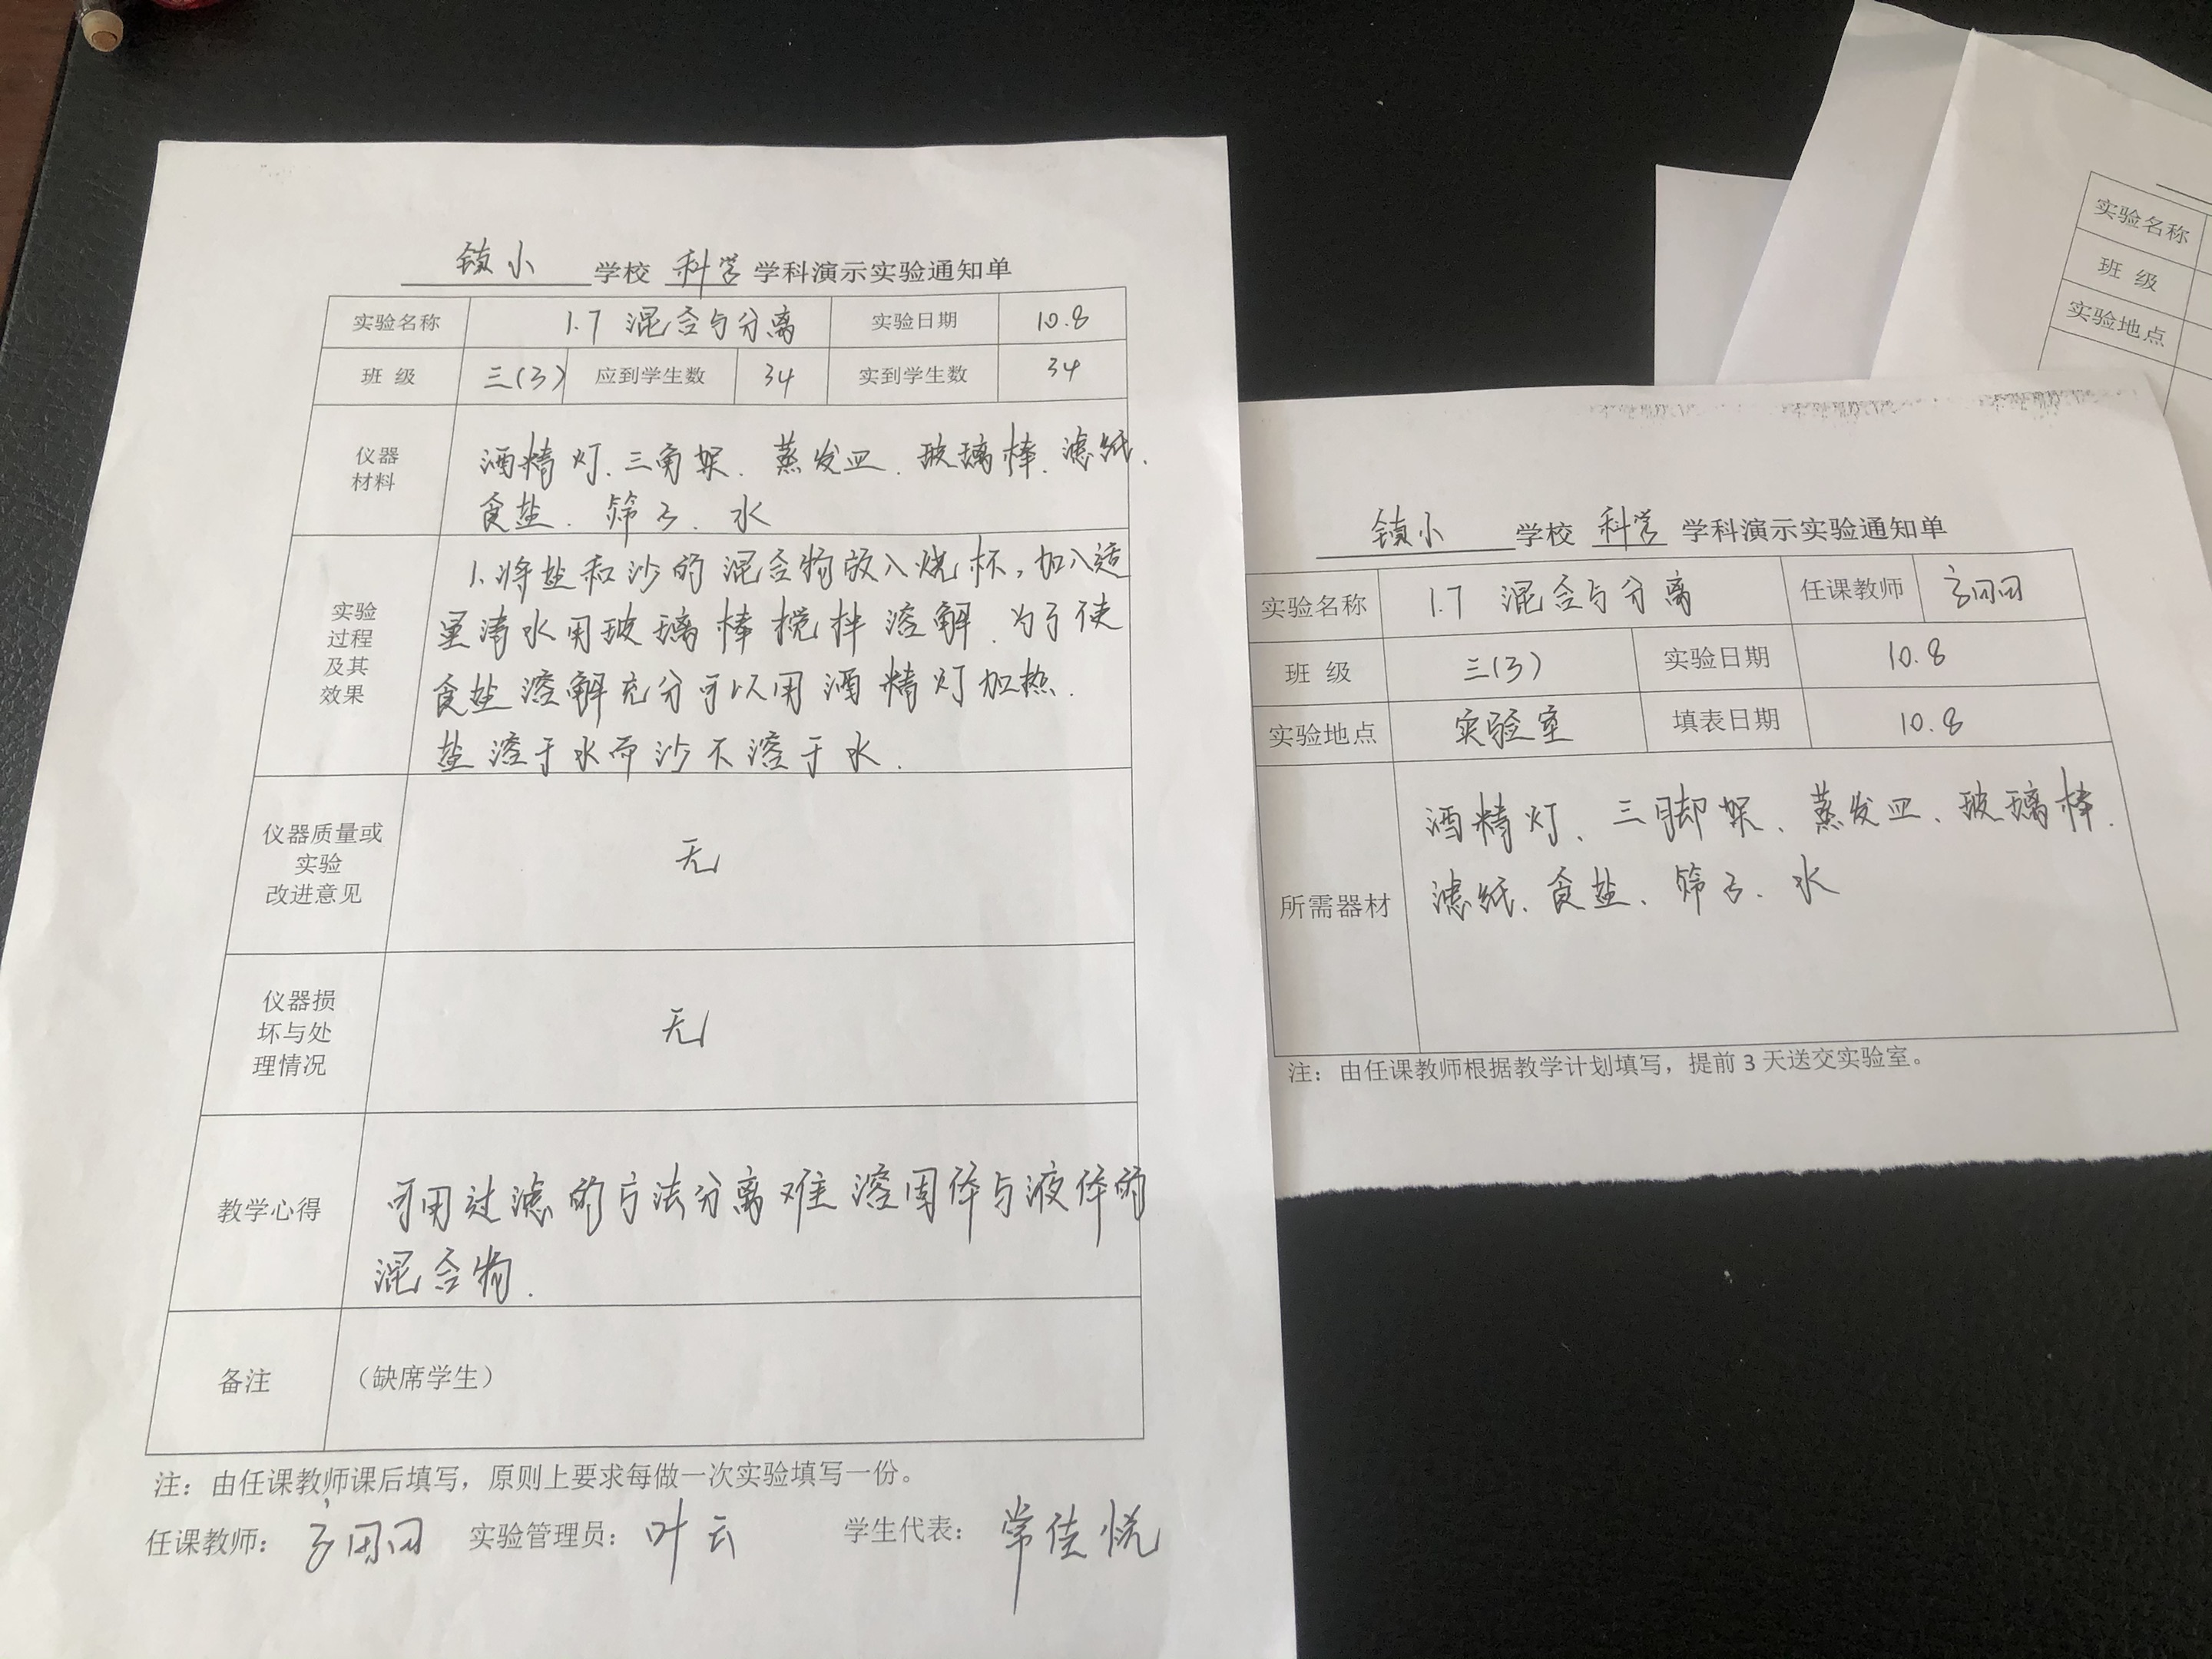 镇小 学校 科学 学科演示实验通知单
实验名称 1.7 混合与分离 实验日期 10.8
班 级 三(3) 应到学生数 34 实到学生数 34
仪器
材料
酒精灯、三角架、蒸发皿、玻璃棒、滤纸、
食盐、筛子、水
实验
过程
及其
效果
1.将盐和沙的混合物放入烧杯,加入适
量清水用玻璃棒搅拌溶解.为了使
食盐溶解充分可以用酒精灯加热.
盐溶于水而沙不溶于水.
仪器质量或
实验
改进意见
无
仪器损
坏与处
理情况
无
教学心得
可用过滤的方法分离难溶固体与液体的
混合物.
备注 (缺席学生)
注:由任课教师课后填写,原则上要求每做一次实验填写一份。
任课教师: 实验管理员:叶云 学生代表:常佳悦
镇小 学校 科学 学科演示实验通知单
实验名称 1.7 混合与分离 任课教师
班 级 三(3) 实验日期 10.8
实验地点 实验室 填表日期 10.8
所需器材
酒精灯、三脚架、蒸发皿、玻璃棒、
滤纸、食盐、筛子、水
注:由任课教师根据教学计划填写,提前3天送交实验室。
实验名称
班 级
实验地点